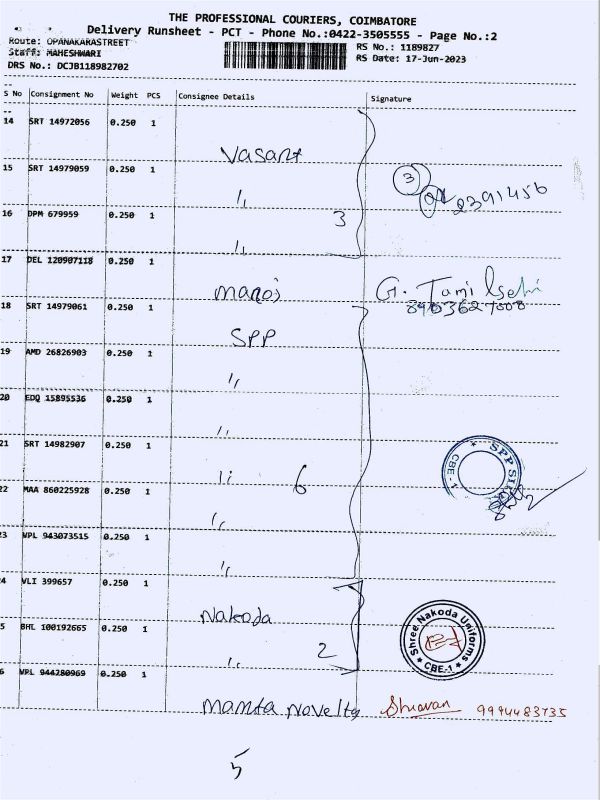 THE PROFESSIONAL COURIERS, COIMBATORE
Delivery Runsheet - PCT - Phone No.:0422-3505555 - Page No.:2
Route: OPANAKARASTREET
RS No.: 1189827
Staff: MAHESHWARI
RS Date: 17-Jun-2023
DRS No.: DCJB118982702
S No Consignment No Weight PCS Consignee Details Signature
14 SRT 14972056 0.250 1
Vasant
15 SRT 14979059 0.250 1
3
2391456
16 DPM 679959 0.250 1
3
17 DEL 120907118 0.250 1
manoj G. Tamilselvi
18 SRT 14979061 0.250 1
SPP
19 AMD 26826903 0.250 1
20 EDQ 15895536 0.250 1
21 SRT 14982907 0.250 1
6
CBE-1
22 MAA 860225928 0.250 1
23 VPL 943073515 0.250 1
4 VLI 399657 0.250 1
Nakoda
Shree Nakoda Uniforms
CBE-1
5 BHL 100192665 0.250 1
2
6 VPL 944280969 0.250 1
Mamta Novelty Shravan 9994483735
5